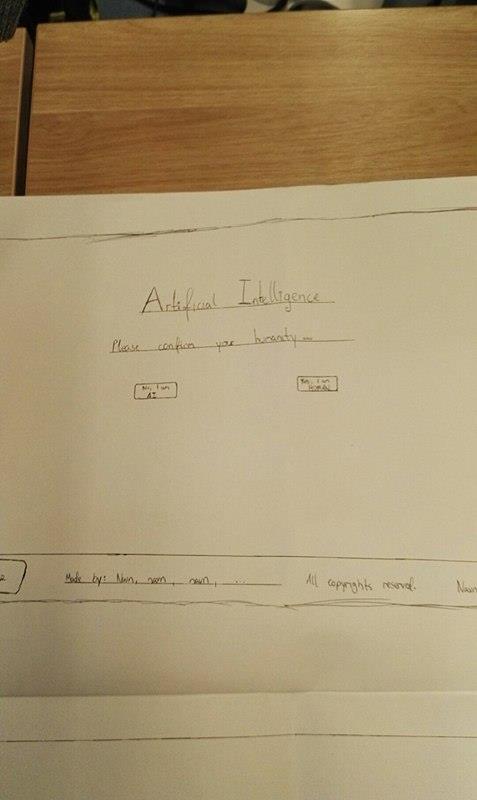 Artificial Intelligence
Please confirm your humanity...
No, I am
AI
Yes, I am
HUMAN
Made by: Nam, nam, nam, ...
All copyrights reserved.